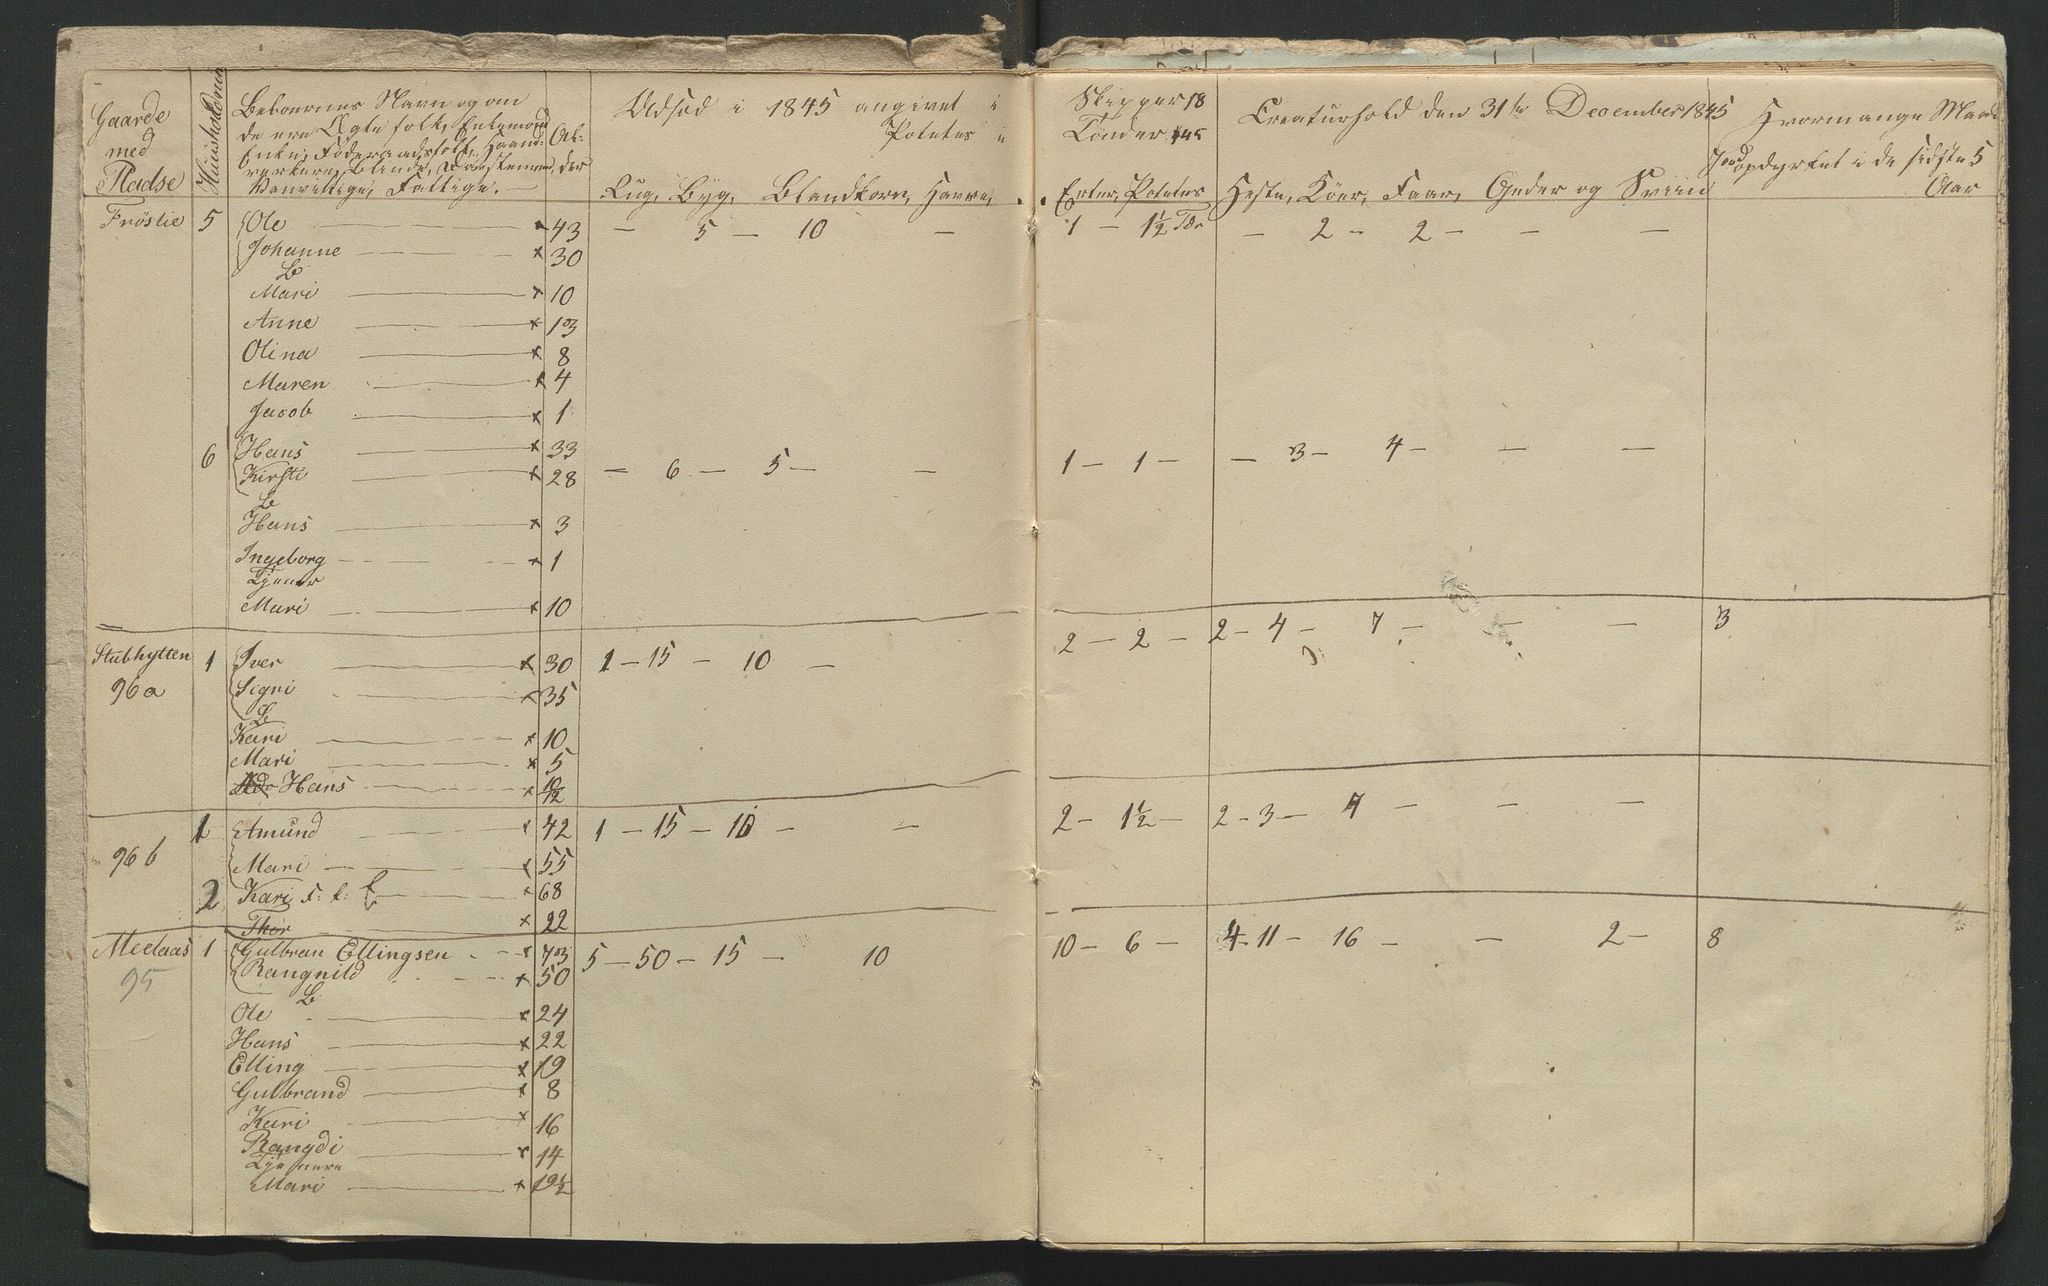 Gaarde
med
Pladse
Huusholdninger
Beboernes Navn og om
de ere Ægtefolk, Enkemænd
Enke, Føderaadsfolk, Haand-
verkere, Blinde, Døvstumme,
Vanvittige, Fattige. —
Al-
der
Udsæd i 1845 angivet i
Potetes i
Rug, Byg, Blandkorn, Havre,
Skipper 18
Tønder 45
Erter, Potetes
Creaturhold den 31te December 1845
Heste, Köer, Faar, Geder og Sviin
Hvormange Maal
Jord opdyrket i de sidste 5
Aar
Fröslie 5 Ole — x 43 — 5 — 10 — 1 — 1½ Tdr — 2 — 2 — — —
Johanne — x 30
B
Mari — x 10
Anne — x 13
Olina — x 8
Maren — x 4
Jacob — x 1
6 Hans — x 33
Kirsti — x 28 — 6 — 5 — — 1 — 1 — — 3 — 4 — — —
B
Hans — x 3
Ingeborg — x 1
Tjener
Mari — x 10
Stubhytten 1 Iver — x 30 1 — 15 — 10 — 2 — 2 — 2 — 4 — 7 — — — 3
96a Sigri — x 35
B
Kari — x 10
Mari — x 5
Hans — x 10/12
1 Amund — x 42 1 — 15 — 10 — — 2 — 1½ — 2 — 3 — 7 — — —
96 b
Mari — x 55
2 Kari F. k: — x 68
Thor — x 22
Meelaas 1 Gulbran Ellingsen — x 73 5 — 50 — 15 — 10 10 — 6 — 4 — 11 — 16 — — 2 — 8
95 Rangnild — x 50
B
Ole — x 24
Hans — x 22
Elling — x 19
Gulbrand — x 8
Kari — x 16
Rangdi — x 14
Tjenere
Mari — x 19½